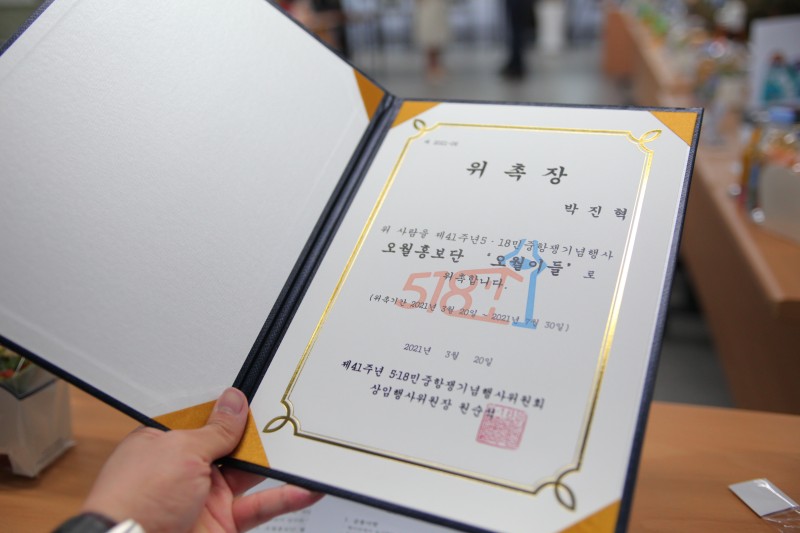 위 촉 장
박 진 혁
위 사람을 제41주년5·18민중항쟁기념행사
오월홍보단 '오월이들' 로
위촉합니다.
(위촉기간 2021년 3월 20일 ~ 2021년 7월 30일)
518
2021년 3월 20일
제41주년 5·18민중항쟁기념행사위원회
상임행사위원장 원순석